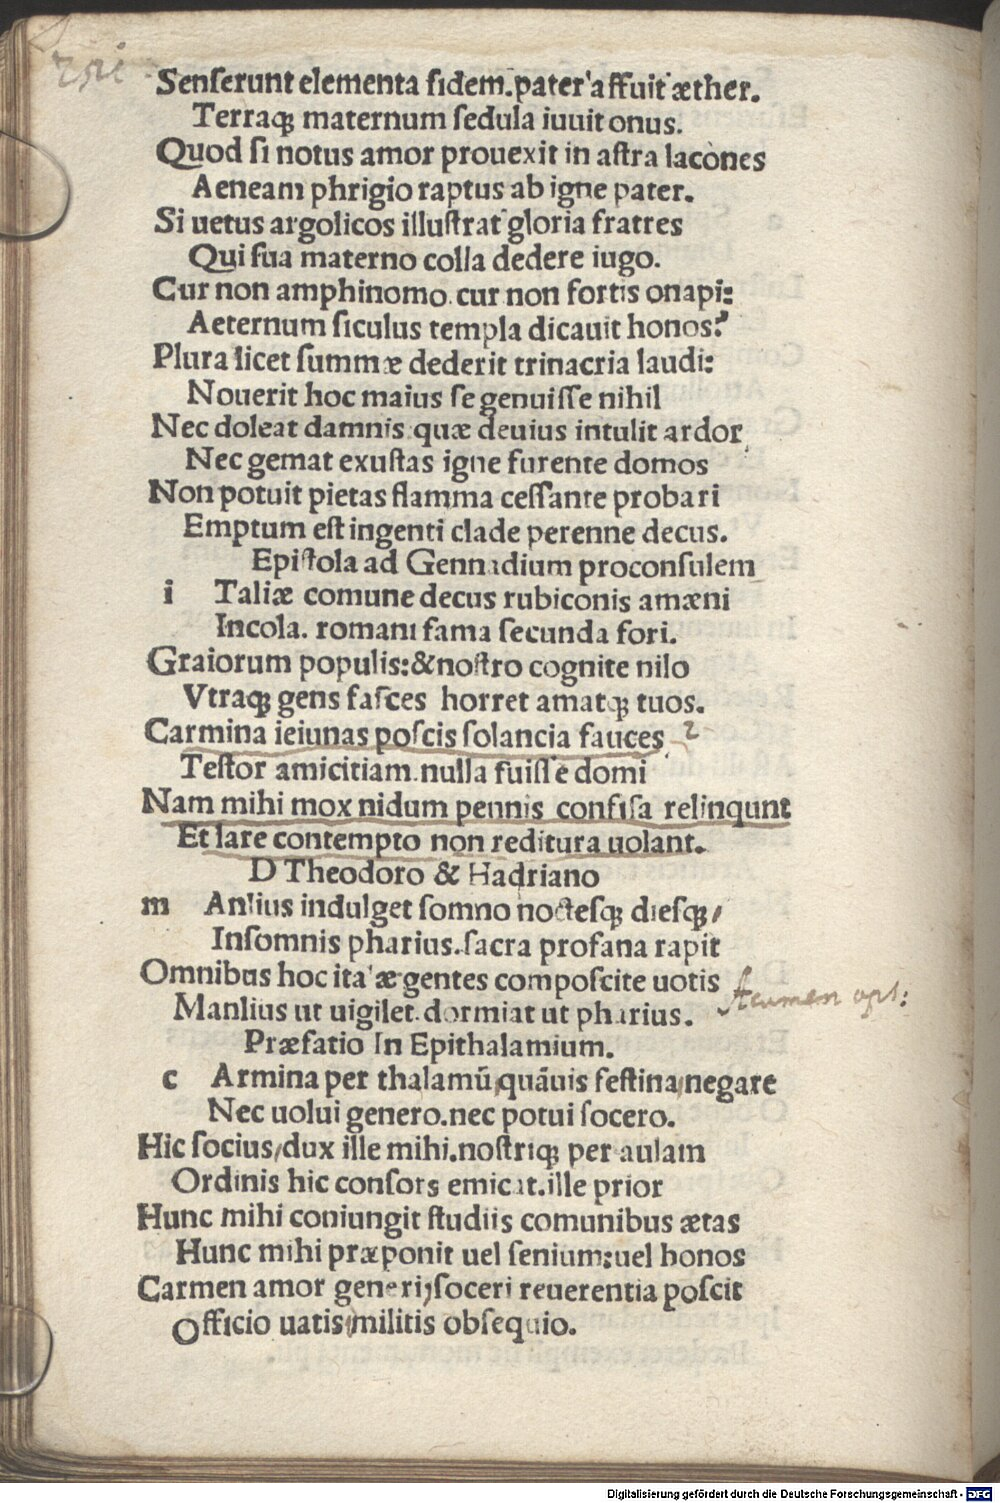 Senserunt elementa fidem.pater affuit æther.
Terraq; maternum sedula iuuit onus.
Quod si notus amor prouexit in astra lacones
Aeneam phrigio raptus ab igne pater.
Si uetus argolicos illustrat gloria fratres
Qui sua materno colla dedere iugo.
Cur non amphinomo.cur non fortis onapi:
Aeternum siculus templa dicauit honos?
Plura licet summæ dederit trinacria laudi:
Nouerit hoc maius se genuisse nihil
Nec doleat damnis quæ deuius intulit ardor
Nec gemat exustas igne furente domos
Non potuit pietas flamma cessante probari
Emptum est ingenti clade perenne decus.
Epistola ad Gennadium proconsulem
i Taliæ comune decus rubiconis amæni
Incola. romani fama secunda fori.
Graiorum populis:& nostro cognite nilo
Vtraq; gens fasces horret amatq; tuos.
Carmina ieiunas poscis solancia fauces
Testor amicitiam.nulla fuisse domi
Nam mihi mox nidum pennis confisa relinqunt
Et lare contempto non reditura uolant.
D Theodoro & Hadriano
m Anlius indulget somno noctesq; diesq;/
Insomnis pharius.sacra profana rapit
Omnibus hoc ita æ gentes composcite uotis
Acumen opt:
Manlius ut uigilet.dormiat ut pharius.
Præfatio In Epithalamium.
c Armina per thalamū quāuis festina negare
Nec uolui genero.nec potui socero.
Hic socius/dux ille mihi.nostriq; per aulam
Ordinis hic consors emicat.ille prior
Hunc mihi coniungit studiis comunibus ætas
Hunc mihi præponit uel senium:uel honos
Carmen amor generi,soceri reuerentia poscit
Officio uatis/militis obsequio.
Digitalisierung gefördert durch die Deutsche Forschungsgemeinschaft - DFG